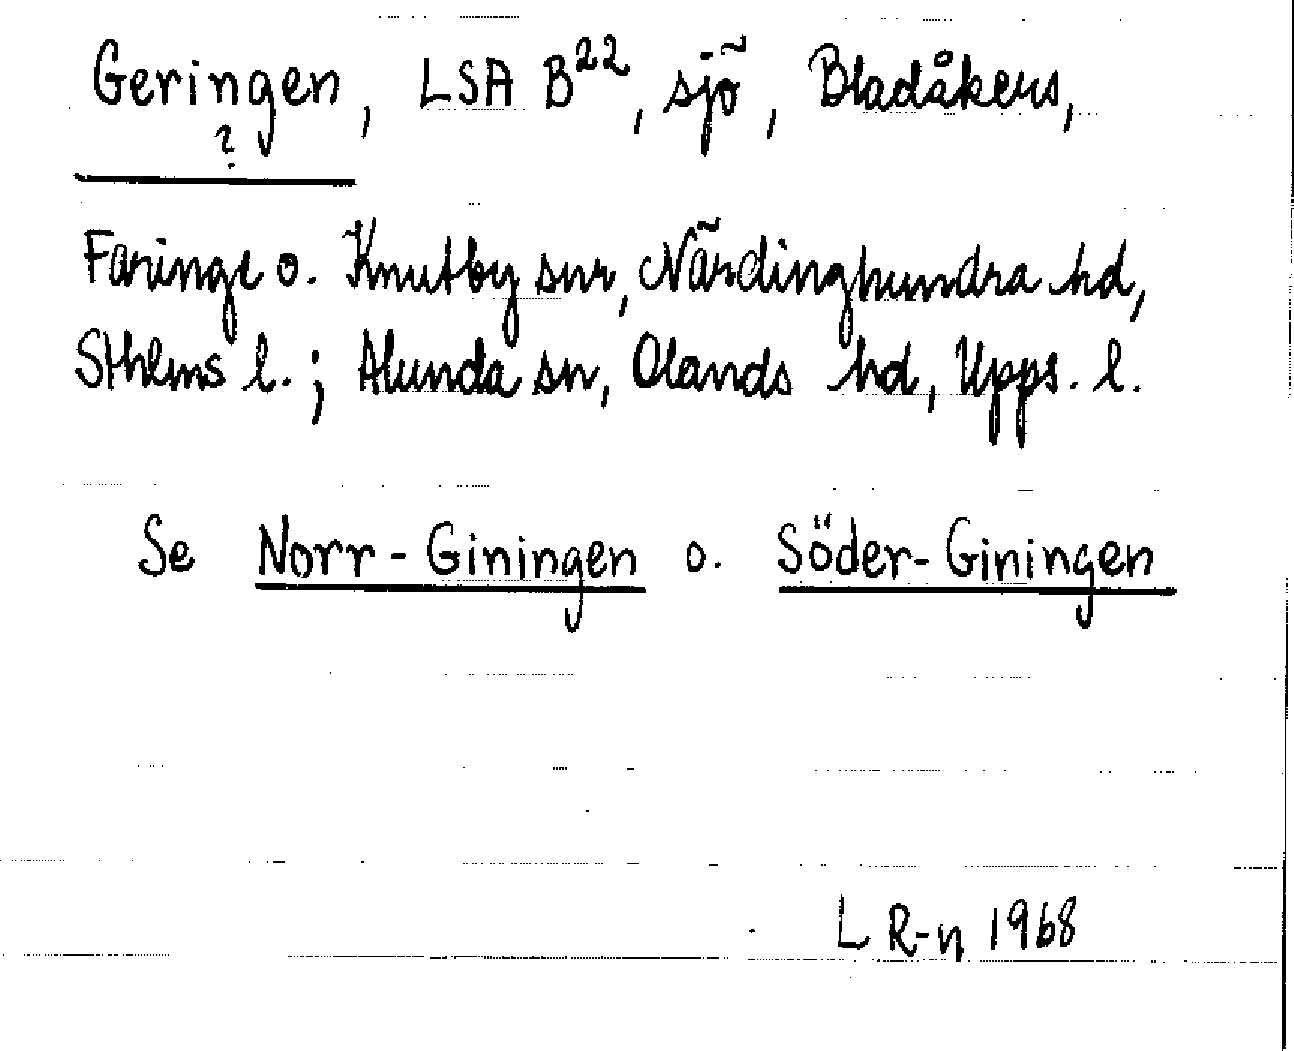 Geringen, LSA B²², sjö, Bladåkers,
?
Faringe o. Knutby snr, Närdinghundra hd,
Sthlms l.; Alunda sn, Olands hd, Upps. l.
Se Norr-Giningen o. Söder-Giningen
L R-n 1968